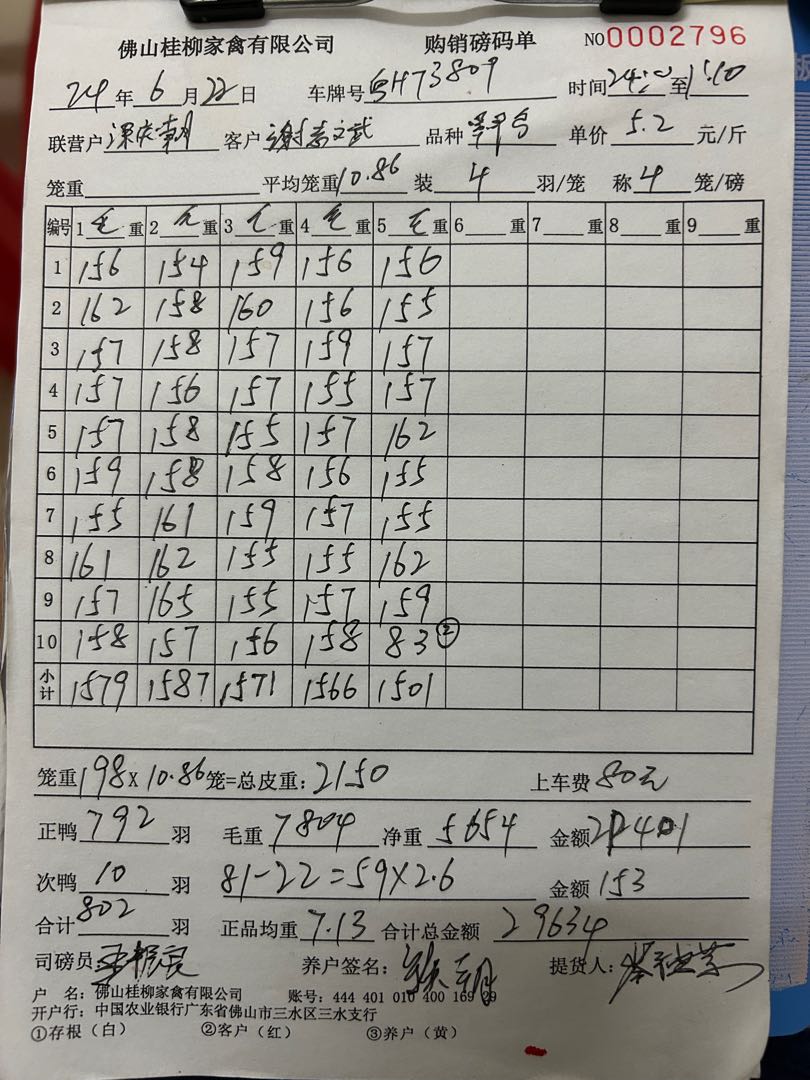 佛山桂柳家禽有限公司 购销磅码单 NO0002796
24年6月22日 车牌号粤H73809 时间24:00至1:10
联营户 客户谢 文武 品种 单价5.2元/斤
笼重 平均笼重10.86 装4羽/笼 称4笼/磅
编号 1毛重 2毛重 3毛重 4毛重 5毛重 6重 7重 8重 9重
1 156 154 159 156 156
2 162 158 160 156 155
3 157 158 157 159 157
4 157 156 157 155 157
5 157 158 155 157 162
6 159 158 158 156 155
7 155 161 159 157 155
8 161 162 155 155 162
9 157 165 155 157 159
10 158 157 156 158 83②
小计 1579 1587 1571 1566 1501
笼重198×10.86笼=总皮重:2150 上车费80元
正鸭792羽 毛重7804 净重5654 金额
次鸭10羽 81-22=59×2.6 金额153
合计802羽 正品均重7.13 合计总金额29634
司磅员 养户签名: 提货人:
户 名:佛山桂柳家禽有限公司 账号:444 401 010 400 169 29
开户行:中国农业银行广东省佛山市三水区三水支行
①存根(白) ②客户(红) ③养户(黄)